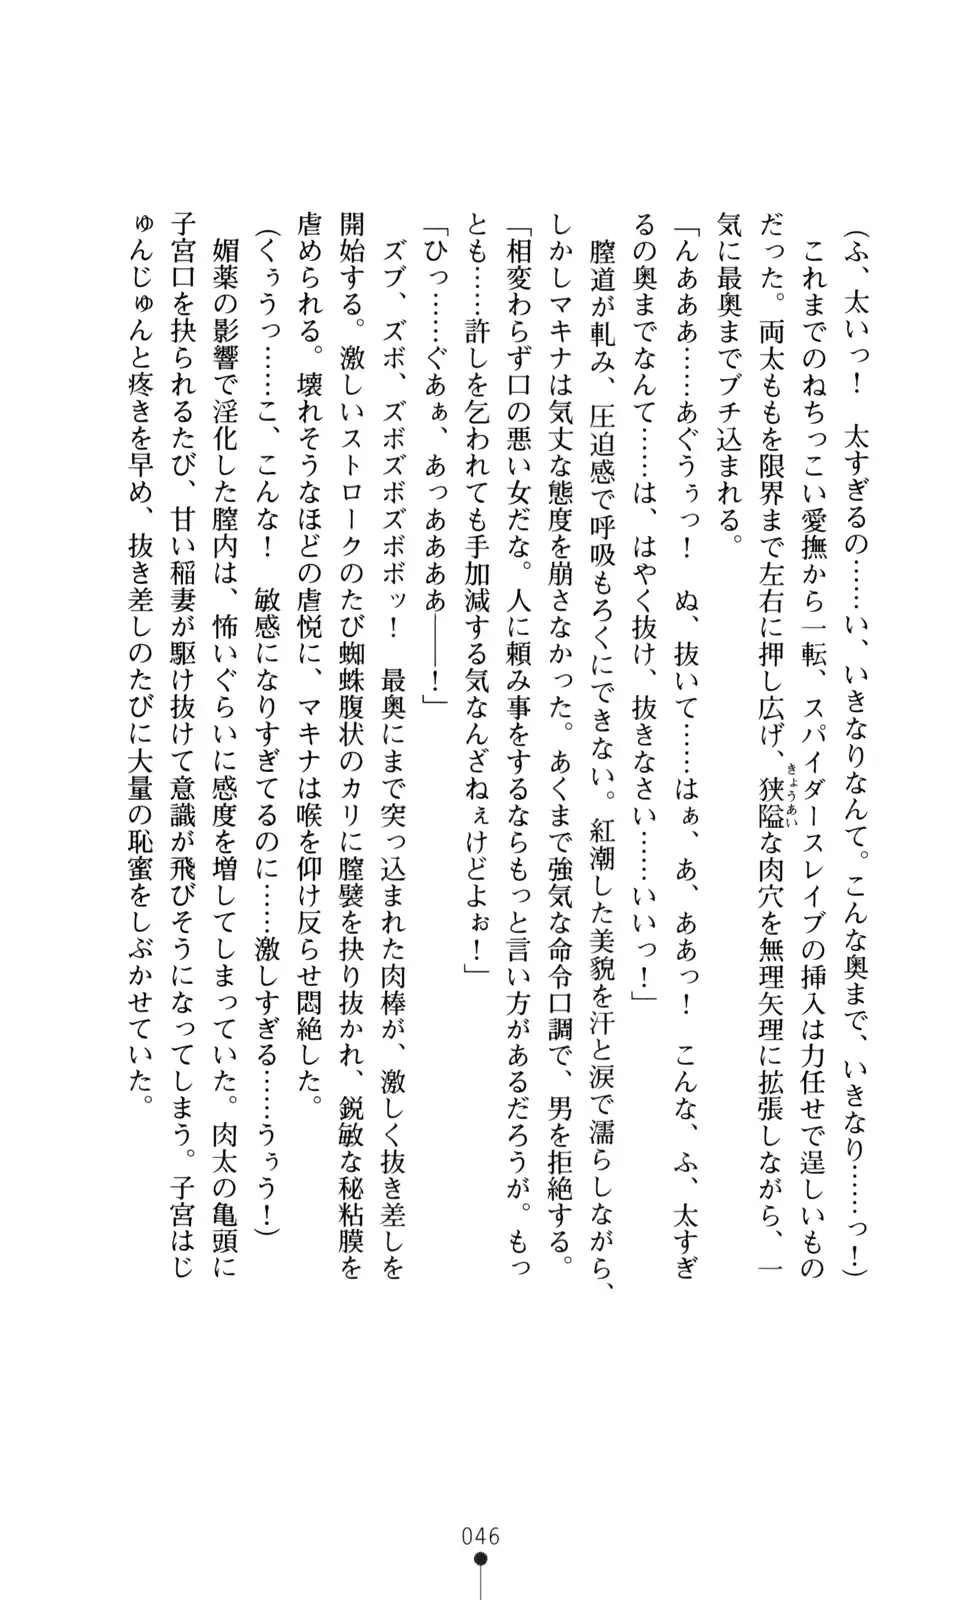 (ふ、太いっ！　太すぎるの……い、いきなりなんて。こんな奥まで、いきなり……っ！)
これまでのねちっこい愛撫から一転、スパイダースレイブの挿入は力任せで逞しいもの
だった。両太ももを限界まで左右に押し広げ、狭隘な肉穴を無理矢理に拡張しながら、一
きょうあい
気に最奥までブチ込まれる。
「んあああ……あぐうぅっ！　ぬ、抜いて……はぁ、あ、ああっ！　こんな、ふ、太すぎ
るの奥までなんて……は、はやく抜け、抜きなさい……いいっ！」
膣道が軋み、圧迫感で呼吸もろくにできない。紅潮した美貌を汗と涙で濡らしながら、
しかしマキナは気丈な態度を崩さなかった。あくまで強気な命令口調で、男を拒絶する。
「相変わらず口の悪い女だな。人に頼み事をするならもっと言い方があるだろうが。もっ
とも……許しを乞われても手加減する気なんざねぇけどよぉ！」
「ひっ……ぐあぁ、あっああああ――！」
ズブ、ズボ、ズボズボズボボッ！　最奥にまで突っ込まれた肉棒が、激しく抜き差しを
開始する。激しいストロークのたび蜘蛛腹状のカリに膣襞を抉り抜かれ、鋭敏な秘粘膜を
虐められる。壊れそうなほどの虐悦に、マキナは喉を仰け反らせ悶絶した。
(くぅうっ……こ、こんな！　敏感になりすぎてるのに……激しすぎる……うぅう！)
媚薬の影響で淫化した膣内は、怖いぐらいに感度を増してしまっていた。肉太の亀頭に
子宮口を抉られるたび、甘い稲妻が駆け抜けて意識が飛びそうになってしまう。子宮はじ
ゅんじゅんと疼きを早め、抜き差しのたびに大量の恥蜜をしぶかせていた。
046